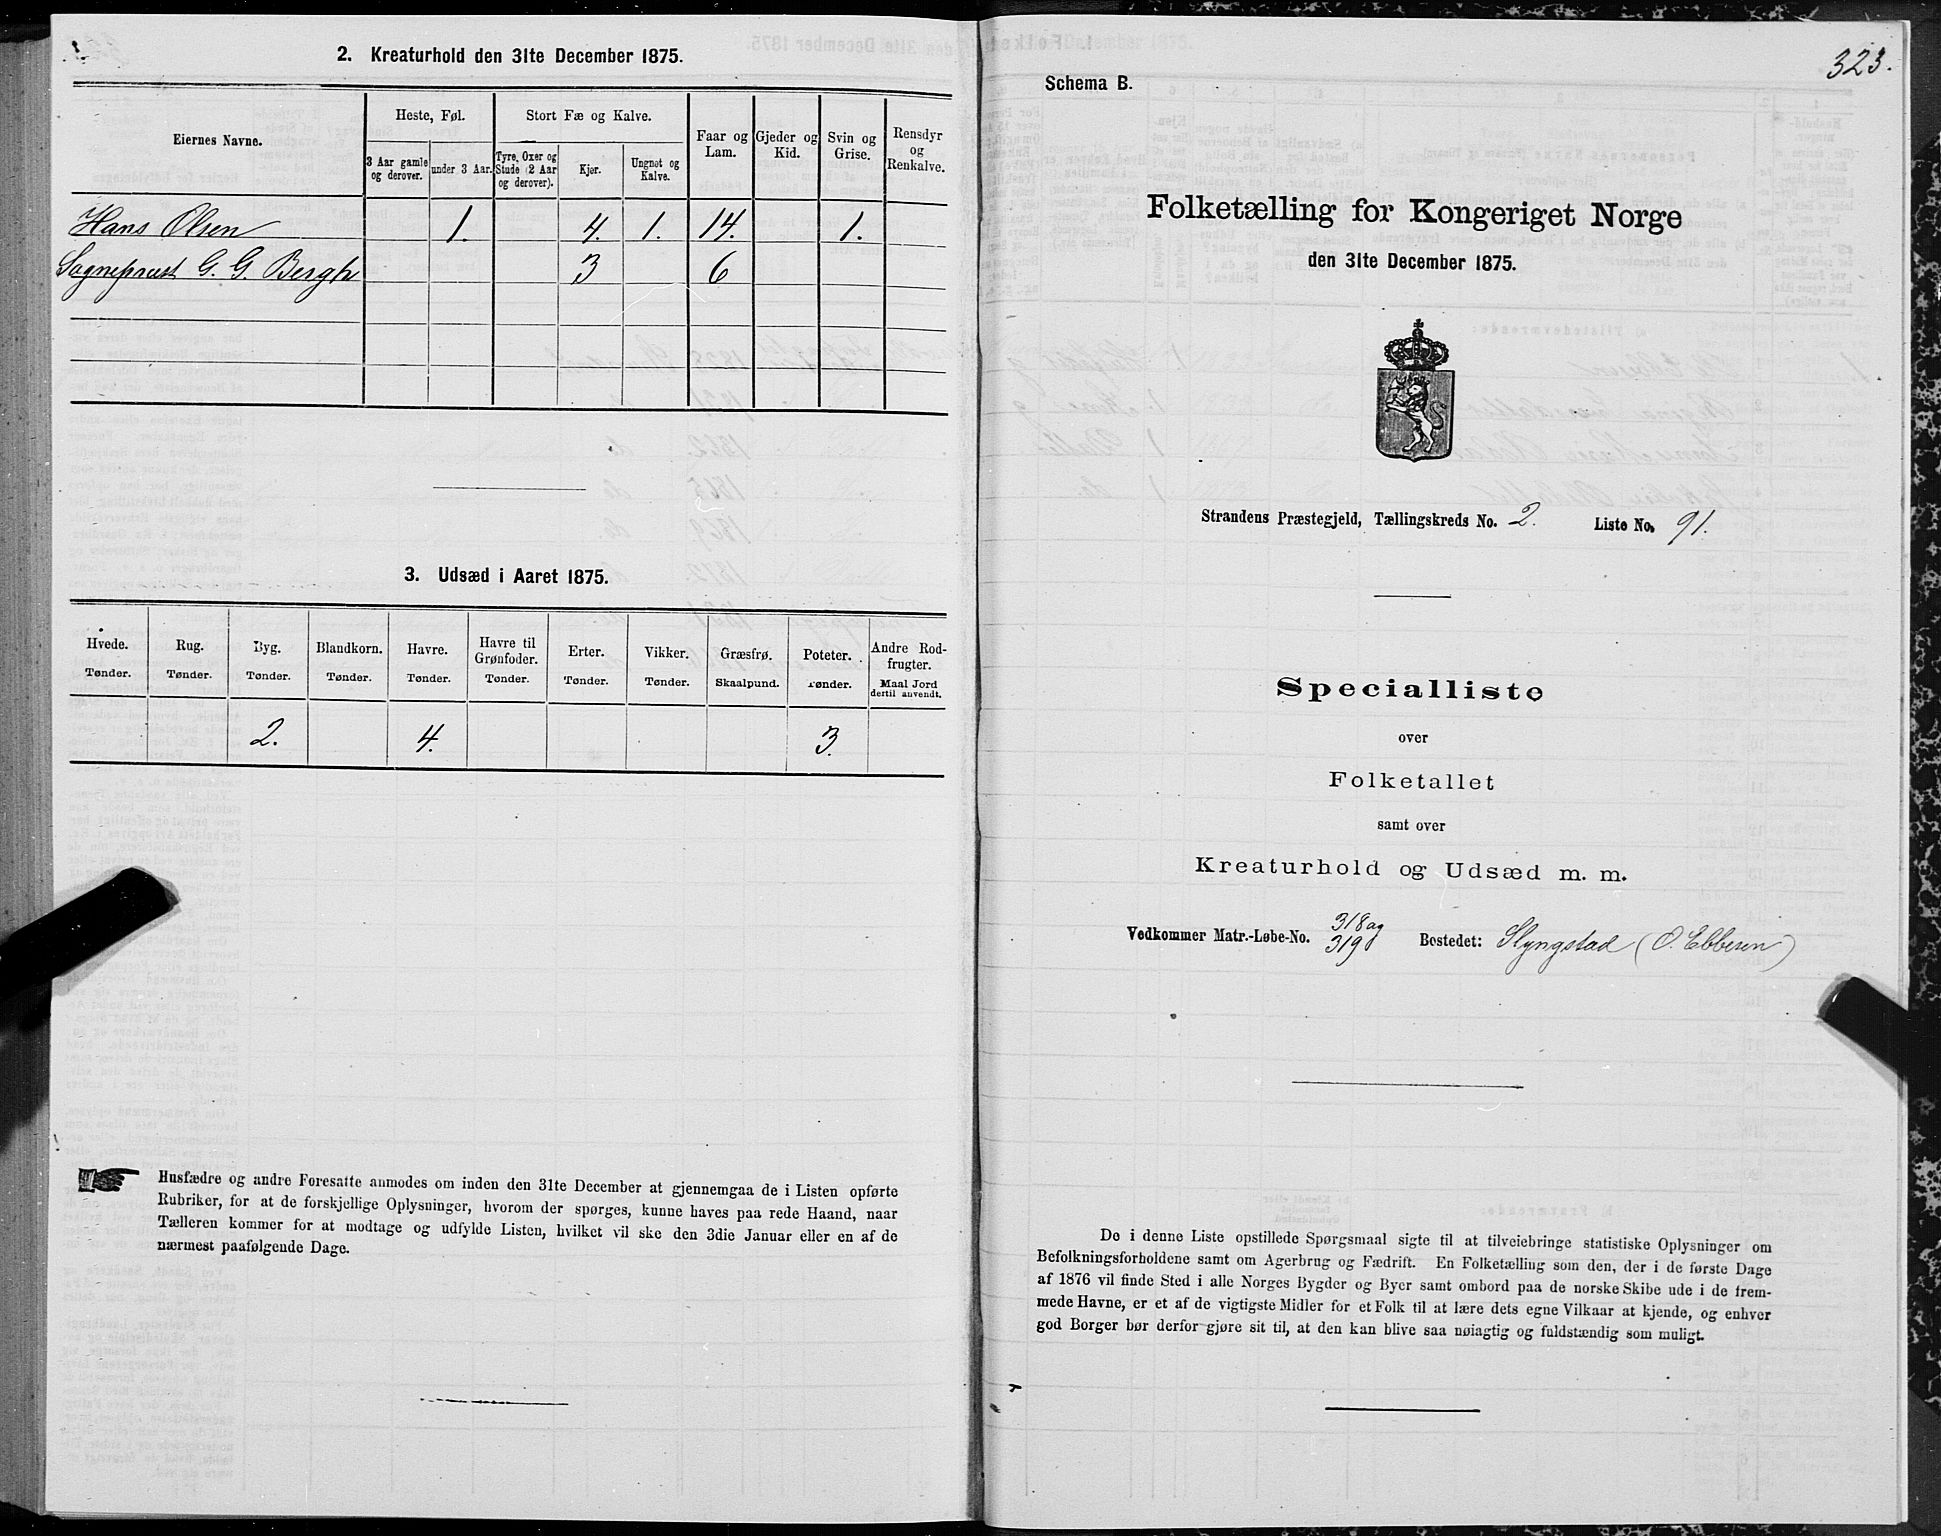 2. Kreaturhold den 31te December 1875.
Eiernes Navne.
Heste, Føl.
Stort Fæ og Kalve.
Faar og Lam.
Gjeder og Kid.
Svin og Grise.
Rensdyr og Renkalve.
3 Aar gamle og derover.
under 3 Aar.
Tyre, Oxer og Stude (2 Aar og derover).
Kjør.
Ungnøt og Kalve.
Hans Olsen 1. 4. 1. 14. 1.
Sognepræst G. G. Bergh 3 6
3. Udsæd i Aaret 1875.
Hvede. Rug. Byg. Blandkorn. Havre. Havre til Grønfoder. Erter. Vikker. Græsfrø. Poteter. Andre Rodfrugter.
Tønder. Tønder. Tønder. Tønder. Tønder. Tønder. Tønder. Tønder. Skaalpund. Tønder. Maal Jord dertil anvendt.
2. 4. 3.
Husfædre og andre Foresatte anmodes om inden den 31te December at gjennemgaa de i Listen opførte
Rubriker, for at de forskjellige Oplysninger, hvorom der spørges, kunne haves paa rede Haand, naar
Tælleren kommer for at modtage og udfylde Listen, hvilket vil ske den 3die Januar eller en af de
nærmest paafølgende Dage.
323.
Schema B.
Folketælling for Kongeriget Norge
den 31te December 1875.
Strandens Præstegjeld, Tællingskreds No. 2. Liste No. 91.
Specialliste
over
Folketallet
samt over
Kreaturhold og Udsæd m. m.
Vedkommer Matr.-Løbe-No. 318ag 319 Bostedet: Slyngstad (O. Ebbesen)
De i denne Liste opstillede Spørgsmaal sigte til at tilveiebringe statistiske Oplysninger om
Befolkningsforholdene samt om Agerbrug og Fædrift. En Folketælling som den, der i de første Dage
af 1876 vil finde Sted i alle Norges Bygder og Byer samt ombord paa de norske Skibe ude i de frem-
mede Havne, er et af de vigtigste Midler for et Folk til at lære dets egne Vilkaar at kjende, og enhver
god Borger bør derfor gjøre sit til, at den kan blive saa nøiagtig og fuldstændig som muligt.